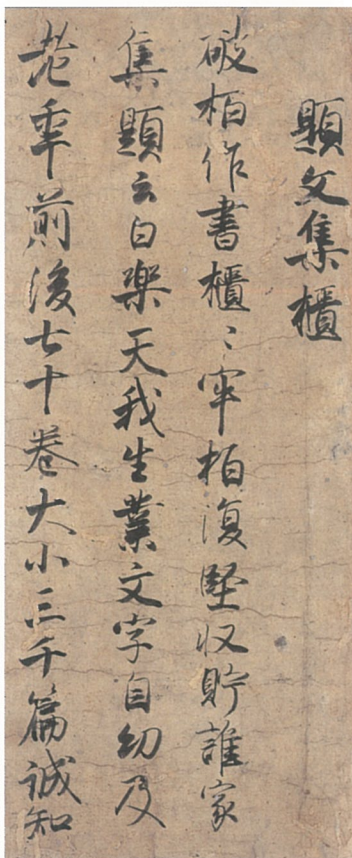 題文集櫃
破柏作書櫃〻牢柏復堅収貯誰家
集題云白樂天我生業文字自幼及
老年前後七十巻大小三千篇誠知